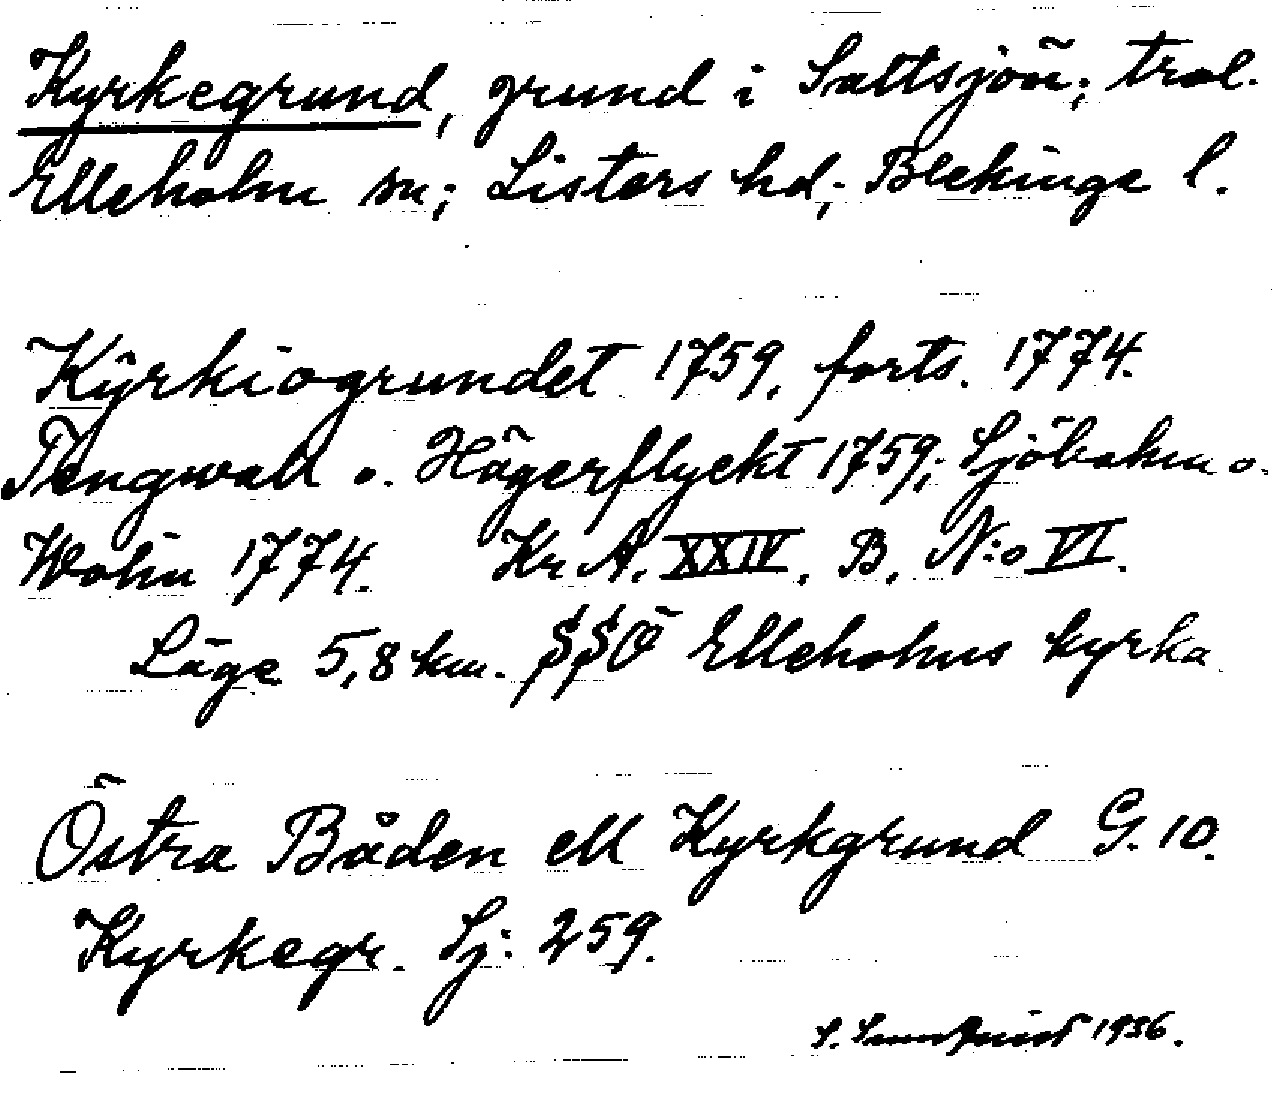 Kyrkegrund, grund i Saltsjön; trol.
Elleholm sn; Listers hd; Blekinge l.
Kÿrkiogrundet 1759, forts. 1774.
Tengwall o. Hägerflyckt 1759; Sjöbohm o.
Wohn 1774. Kr A. XXIV. B. N:o VI.
Läge 5,8 km. SSÖ Elleholms kyrka
Östra Båden ell Kyrkgrund G. 10.
Kyrkegr. Sj: 259.
S. 1936.